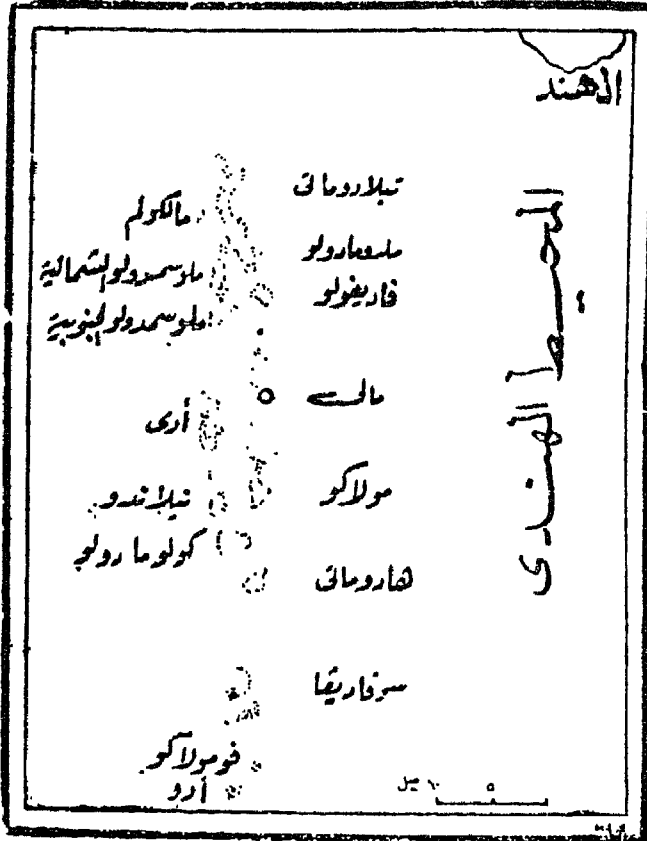 الهند
المحيط الهندى
تيلادوماتى
مالكولم
ملدومادولو
ملوسمدولو الشمالية
فاديفولو
ملوسمدولو الجنوبية
مالى
أدى
مولاكو
نيلاندو
كولومادولو
هادوماتى
سوفاديفا
فومولاكو
أدو
ميل